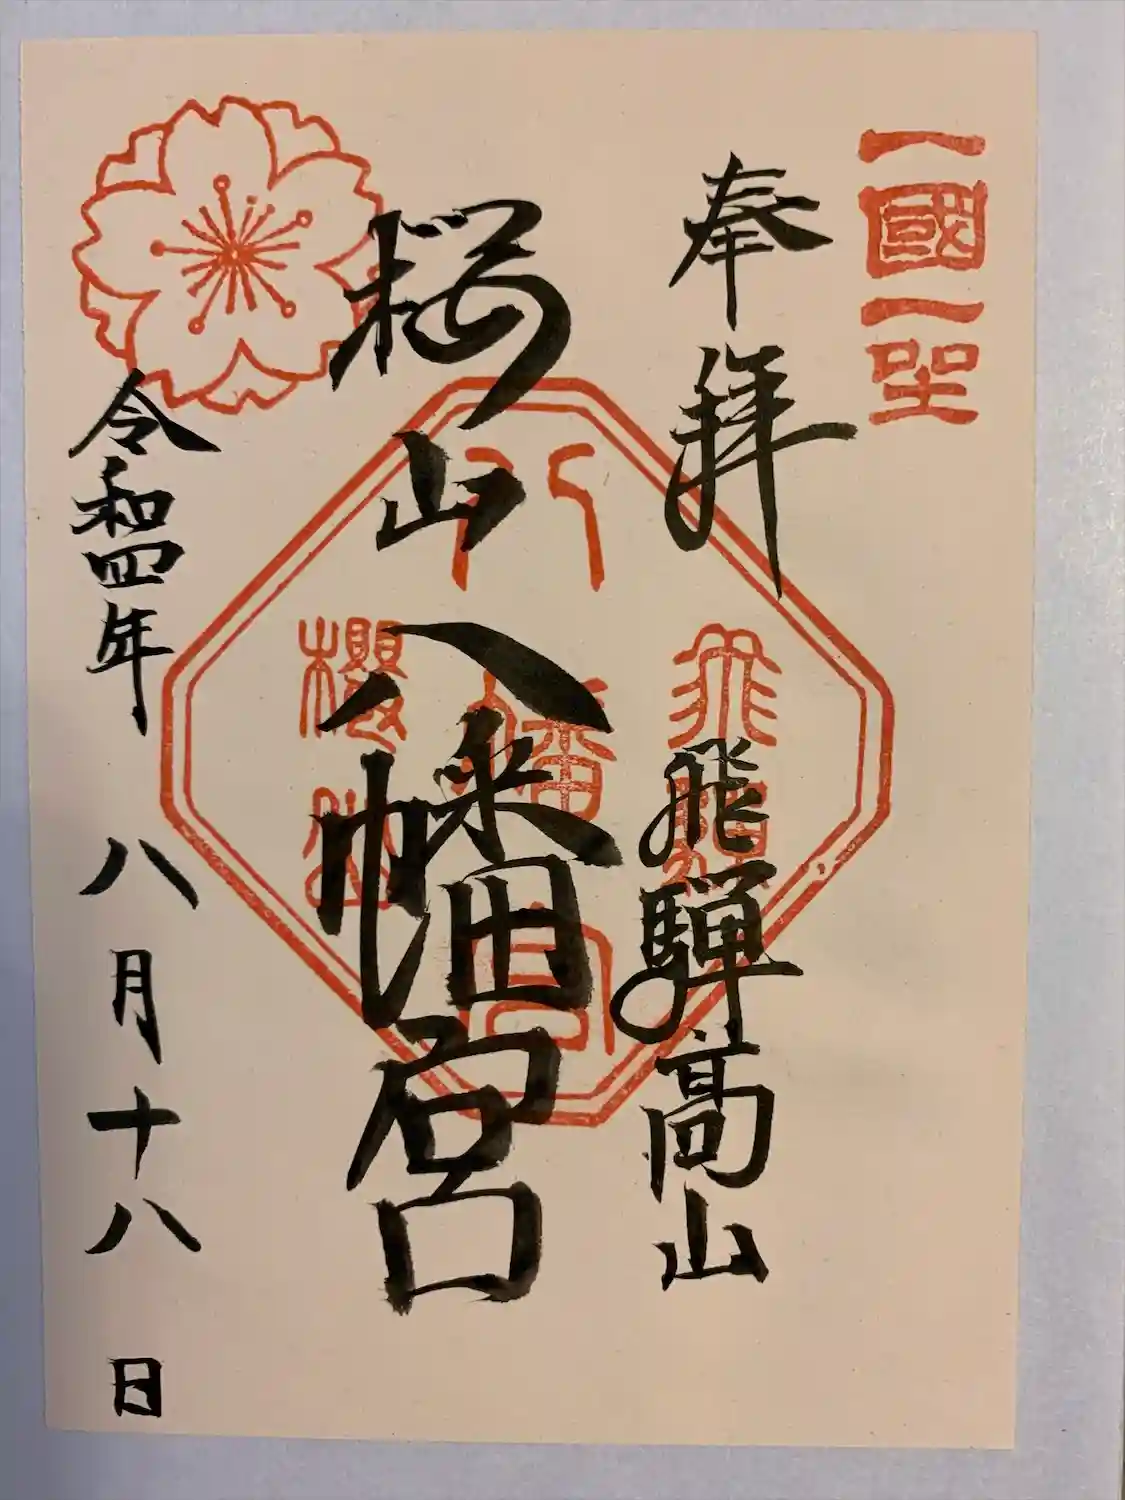 一國一
奉拝
飛騨高山
桜山八幡宮
飛騨
八幡宮
櫻山
令和四年八月十八日